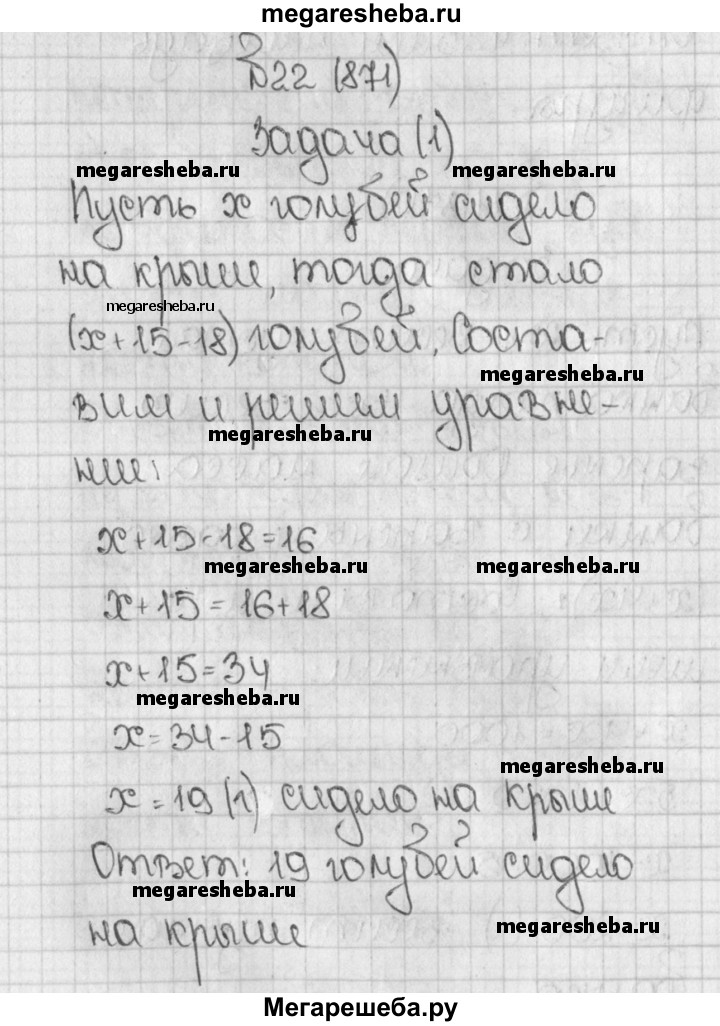 megaresheba.ru
№22 (871)
Задача (1)
megaresheba.ru megaresheba.ru
Пусть x голубей сидело
на крыше, тогда стало
megaresheba.ru
(x+15-18) голубей. Соста-
megaresheba.ru
вим и решим уравне-
megaresheba.ru
ние:
x+15-18=16
megaresheba.ru megaresheba.ru
x+15=16+18
x+15=34
megaresheba.ru
x=34-15
megaresheba.ru
x=19 (г) сидело на крыше
Ответ: 19 голубей сидело
megaresheba.ru
megaresheba.ru
на крыше
Мегарешеба.ру